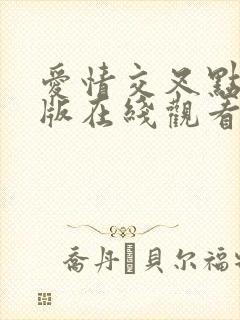 愛情交叉點
版在綫觀看
喬丹·貝尔福